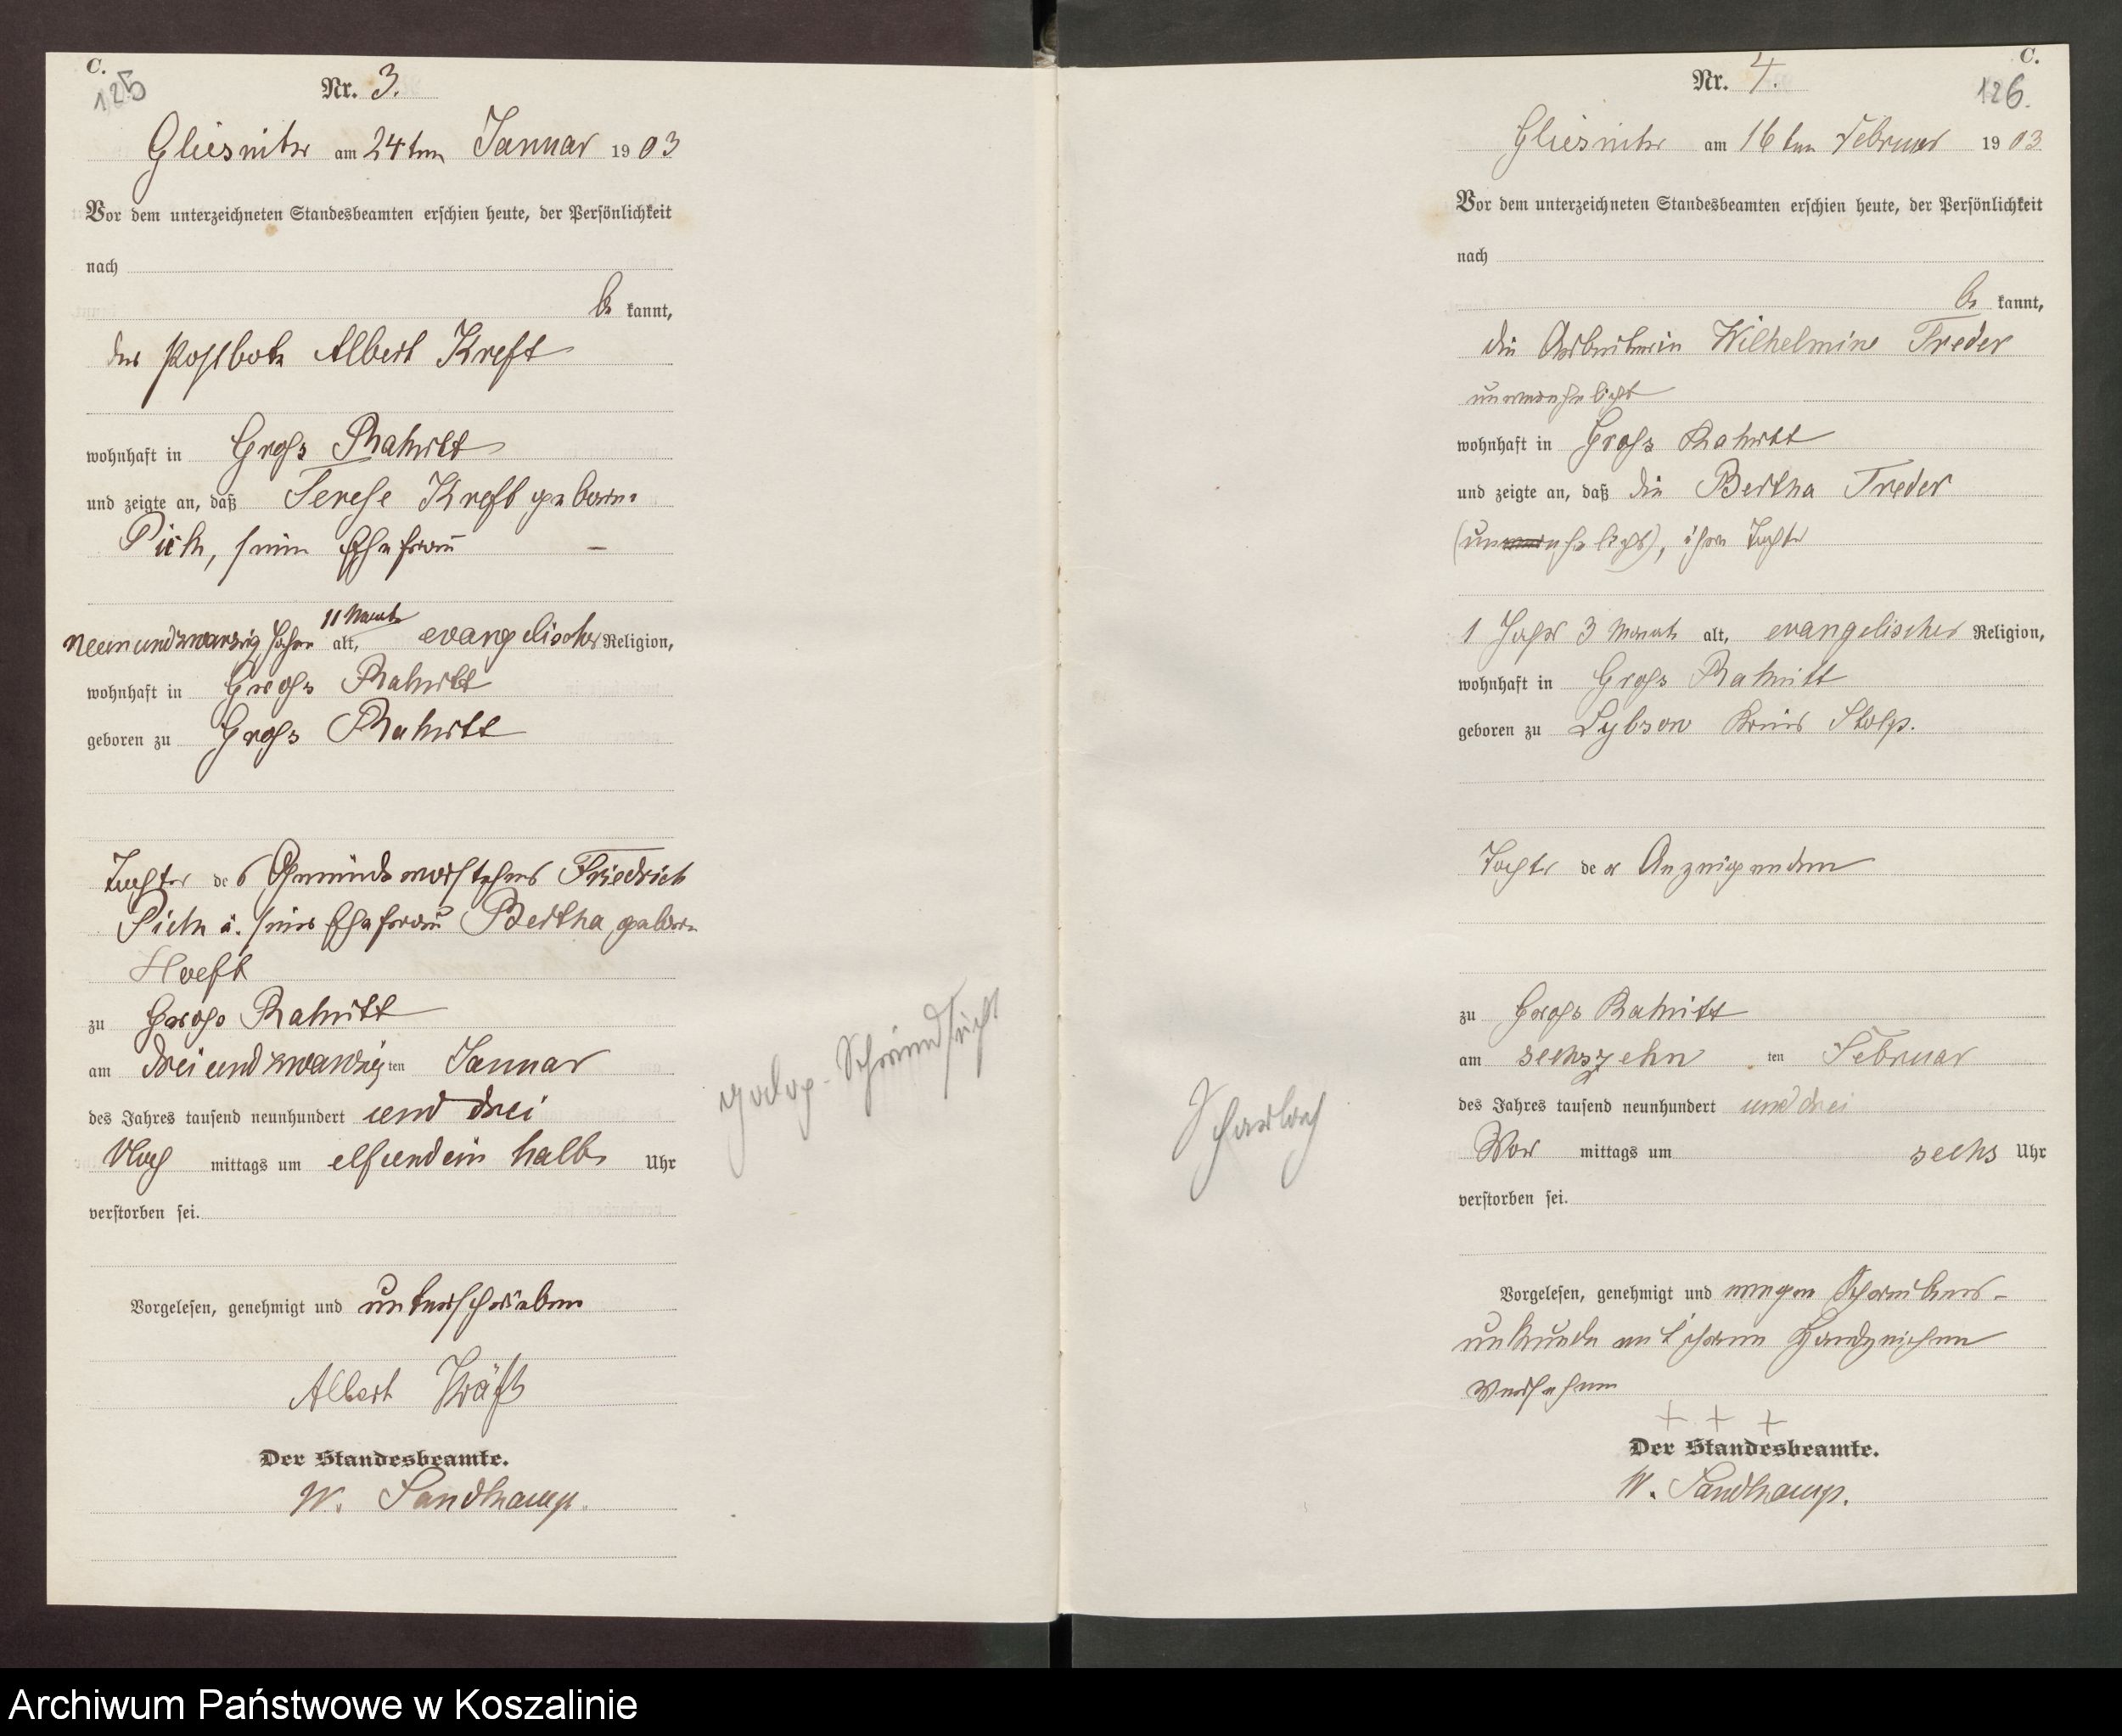 C.
125
Nr. 3.
Gliesnitz am 24ten Januar 1903
Vor dem unterzeichneten Standesbeamten erschien heute, der Persönlichkeit
nach
be kannt,
der Postbote Albert Kreft
wohnhaft in Groß Rakitt
und zeigte an, daß Terese Kreft geborne
Pich, seine Ehefrau —
11 Monate
neunundzwanzig Jahre alt, evangelischer Religion,
wohnhaft in Groß Rakitt
geboren zu Groß Rakitt
Tochter des Gemeindevorstehers Friedrich
Pich u. seiner Ehefrau Bertha, geborne
Hoeft
zu Groß Rakitt
am dreiundzwanzigten Januar
des Jahres tausend neunhundert und drei
Nach mittags um elfundein halb Uhr
verstorben sei.
Vorgelesen, genehmigt und unterschrieben
Albert Kräft
Der Standesbeamte.
W. Sandkamp.
galop. Schwindsucht
C.
126.
Nr. 4.
Gliesnitz am 16ten Februar 1903
Vor dem unterzeichneten Standesbeamten erschien heute, der Persönlichkeit
nach
be kannt,
die Arbeiterin Wilhelmine Treder
unverehelicht
wohnhaft in Groß Rakitt
und zeigte an, daß die Bertha Treder
(unverehelicht), ihre Tochter
1 Jahr 3 Monate alt, evangelischer Religion,
wohnhaft in Groß Rakitt
geboren zu Lybsow Kreis Stolp.
Tochter der Anzeigenden
zu Groß Rakitt
am sechszehn ten Februar
des Jahres tausend neunhundert und drei
Vor mittags um sechs Uhr
verstorben sei.
Vorgelesen, genehmigt und wegen Schreibens-
unkunde mit ihrem Handzeichen
versehen
+ + +
Der Standesbeamte.
W. Sandkamp.
Scharlach
Archiwum Państwowe w Koszalinie